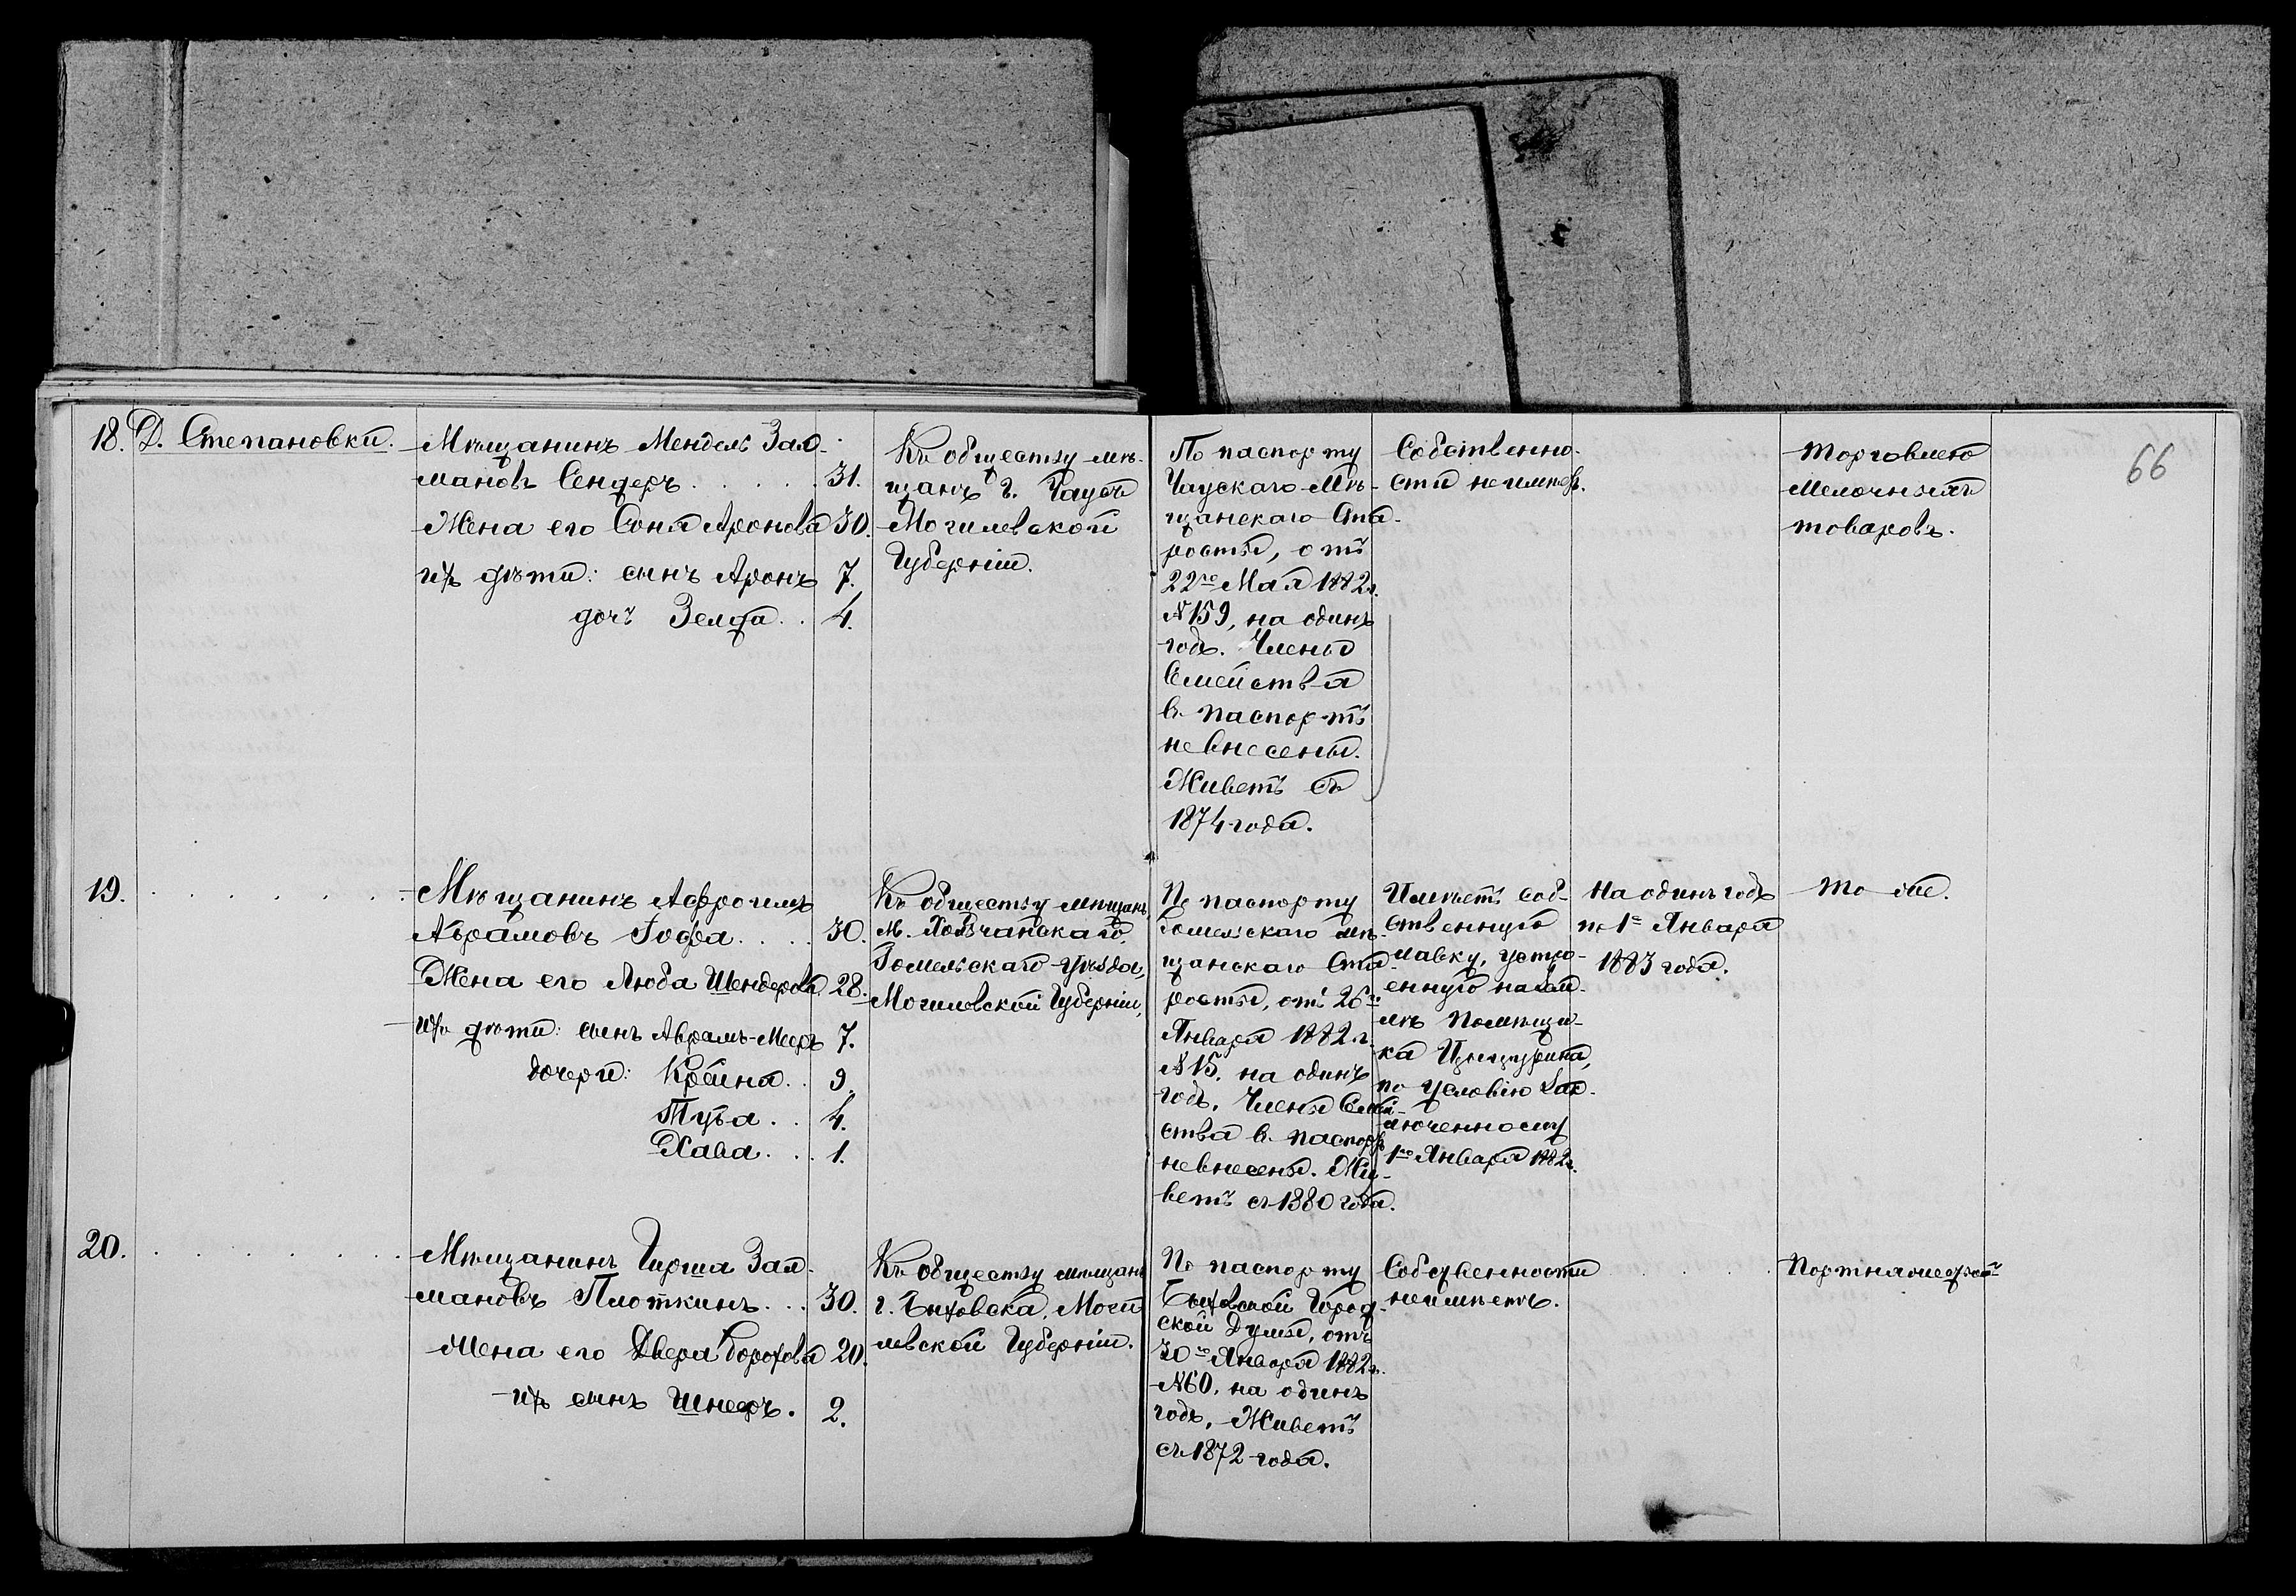 66
18. Д. Степановки.
Мѣщанинъ Мендель Зал-
мановъ Сендеръ . . . . . 31.
Жена его Соня Аронова 30.
ихъ дѣти: сынъ Аронъ 7.
дочь Зелда . . 4.
Къ обществу мѣ-
щанъ г. Чаусъ
Могилевской
Губерніи.
По паспорту
Чаускаго Мѣ-
щанскаго Ста-
росты, отъ
22го Мая 1882г.
№159, на одинъ
годъ. Члены
Семейства
въ паспортъ
невнесены.
Живетъ съ
1874 года.
Собственно-
сти неимѣетъ.
Торговлею
мелочнымъ
товаровъ.
19. . . . . . . .
Мѣщанинъ Афроимъ
Абрамовъ Гофа . . . . 30.
Жена его Люба Шендерова 28.
ихъ дѣти: сынъ Авраамъ-Мееръ 7.
дочери: Крейна . . 9.
Туба . . 4.
Хава . . . 1.
Къ обществу мѣщанъ
м. Холчанскаго,
Гомельскаго уѣзда,
Могилевской Губерніи,
По паспорту
Гомельскаго мѣ-
щанскаго Ста-
росты, отъ 26го
Января 1882 г.
№15, на одинъ
годъ. Члены Семей-
ства въ паспортъ
невнесены. Жи-
ветъ съ 1880 года.
Имѣетъ соб-
ственную
лавку, устро-
енную на зем-
лѣ помѣщи-
ка
по условію зак-
люченному
1го Января 1882г.
На одинъ годъ
по 1е Января
1883 года.
То же.
20. . . . . . . .
Мѣщанинъ Гирша Зал-
мановъ Плоткинъ . . . 30.
Жена его Двера Борохова 20.
ихъ сынъ Шнееръ. 2.
Къ обществу мѣщанъ
г. Быховска, Моги-
левской Губерніи.
По паспорту
Быховской Город-
ской Думы, отъ
30го Января 1882г.
№60, на одинъ
годъ, Живетъ
съ 1872 года.
Собственности
неимѣетъ.